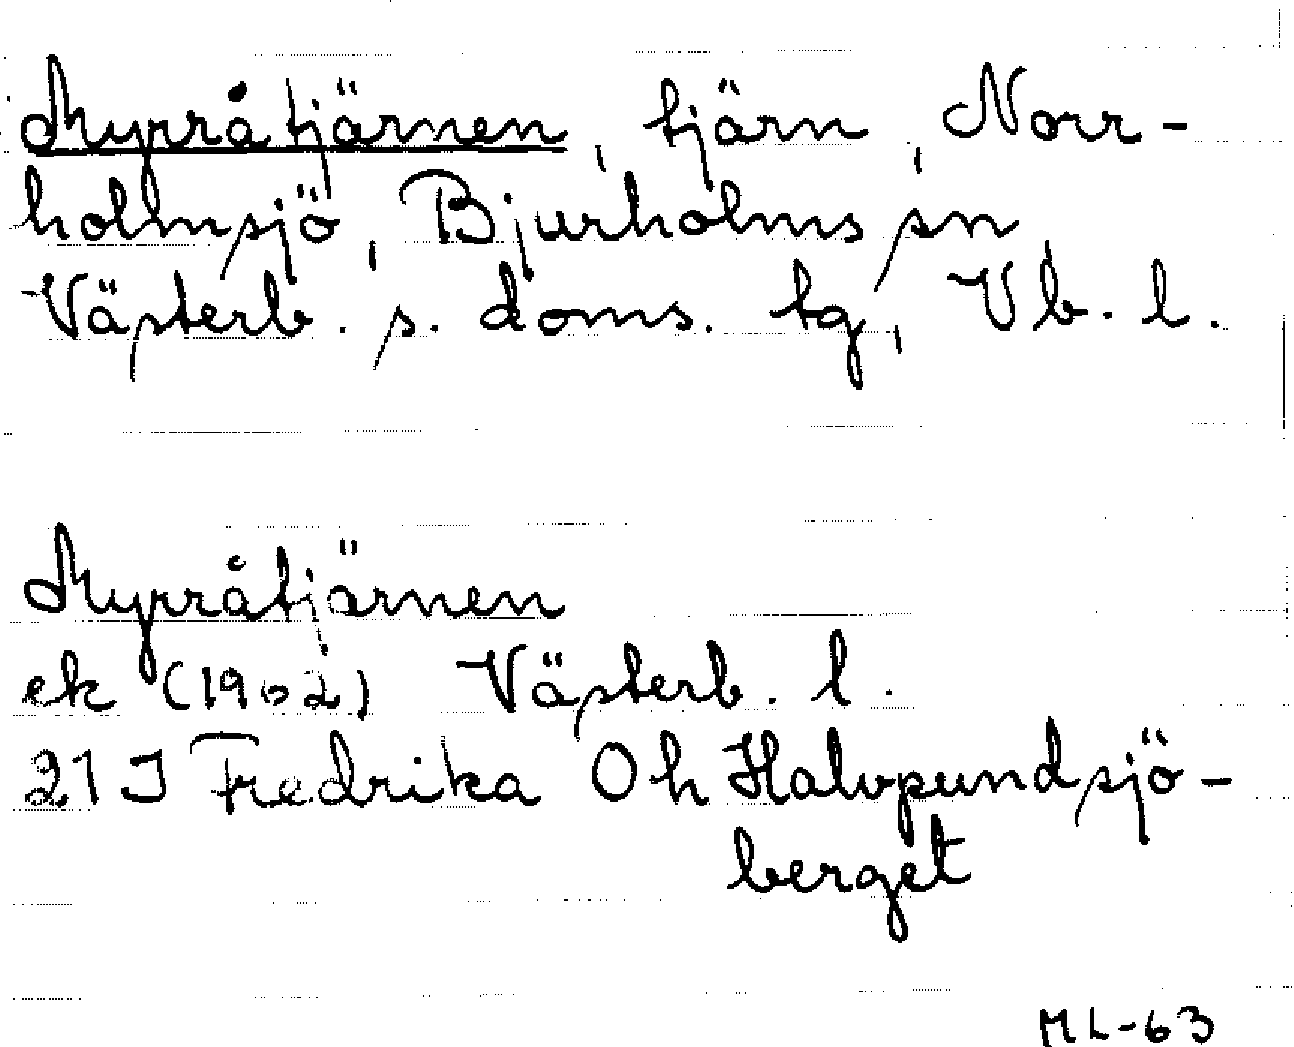 Myrråtjärnen, tjärn, Norr-
holmsjö, Bjurholms sn
Västerb. s. doms. tg, Vb. l.
Myrråtjärnen
ek (1962) Västerb. l.
21 J Fredrika 0 h Halvpundsjö-
berget
ML-63